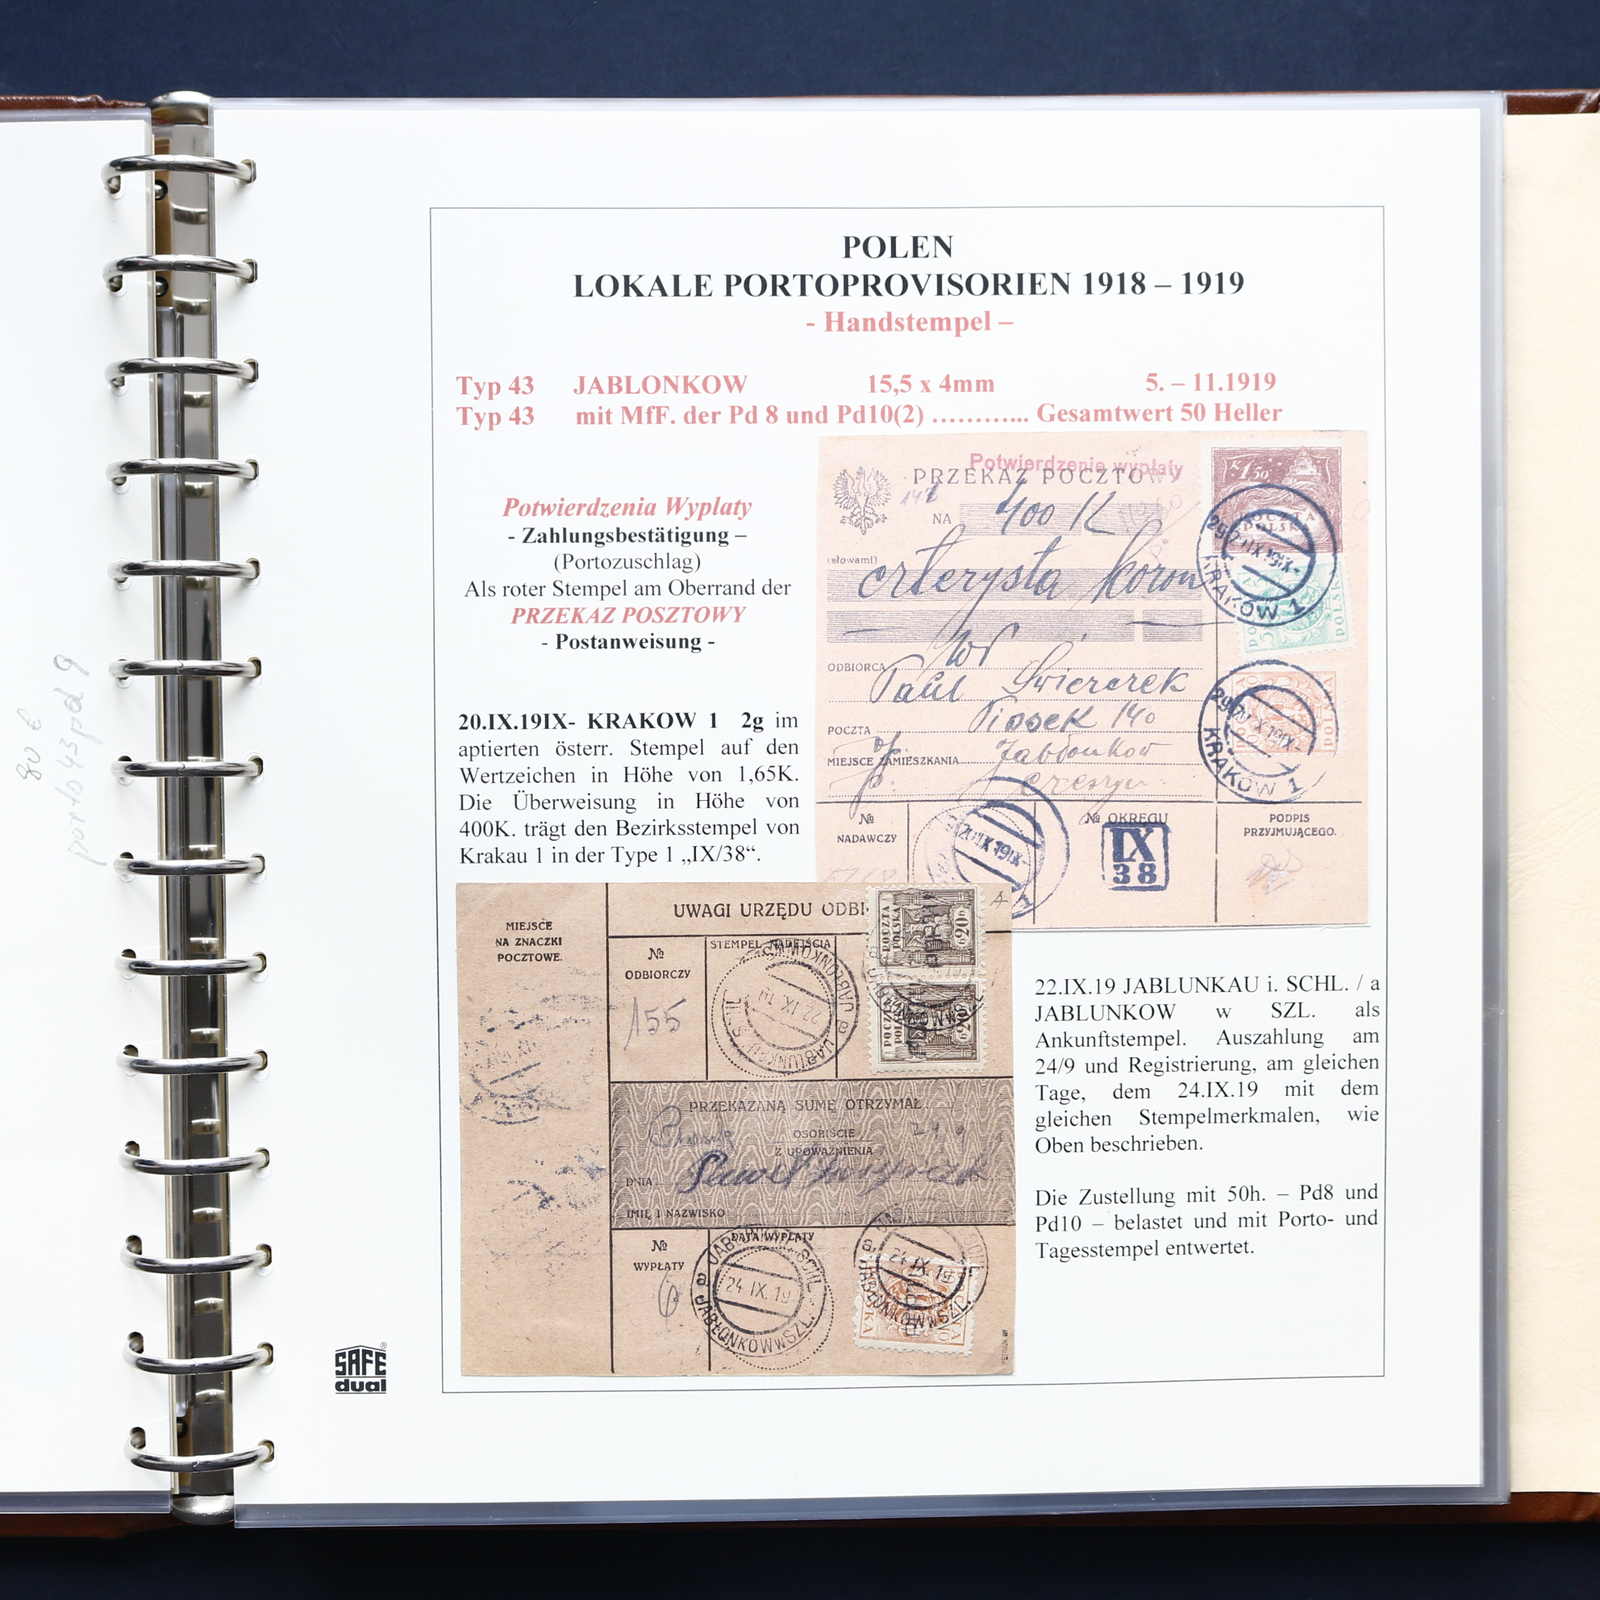 POLEN
LOKALE PORTOPROVISORIEN 1918 – 1919
- Handstempel –
Typ 43 JABLONKOW 15,5 x 4mm 5. – 11.1919
Typ 43 mit MfF. der Pd 8 und Pd10(2) ………... Gesamtwert 50 Heller
Potwierdzenia Wyplaty
- Zahlungsbestätigung –
(Portozuschlag)
Als roter Stempel am Oberrand der
PRZEKAZ POSZTOWY
- Postanweisung -
20.IX.19IX- KRAKOW 1 2g im
aptierten österr. Stempel auf den
Wertzeichen in Höhe von 1,65K.
Die Überweisung in Höhe von
400K. trägt den Bezirksstempel von
Krakau 1 in der Type 1 „IX/38“.
Potwierdzenie wypłaty
PRZEKAZ POCZTOWY
NA 400 K
(słowami)
czterysta koron
ODBIORCA
Paul
POCZTA
Piosek 140
MIEJSCE ZAMIESZKANIA
Jabłonkow
№
NADAWCZY
№ OKRĘGU
IX
38
PODPIS
PRZYJMUJĄCEGO.
POCZTA
POLSKA
KRAKOW 1
KRAKOW 1
MIEJSCE
NA ZNACZKI
POCZTOWE.
UWAGI URZĘDU ODBI
№
ODBIORCZY
155
STEMPEL NADEJŚCIA
22 IX.19
POCZTA
POLSKA
20
POCZTA
POLSKA
20
PRZEKAZANĄ SUMĘ OTRZYMAŁ
OSOBIŚCIE
Z UPOWAŻNIENIA
DNIA
IMIĘ I NAZWISKO
№
WYPŁATY
DATA WYPŁATY
24 IX.19
a JABŁONKÓW w SZL.
24 IX.19
22.IX.19 JABLUNKAU i. SCHL. / a
JABLUNKOW w SZL. als
Ankunftstempel. Auszahlung am
24/9 und Registrierung, am gleichen
Tage, dem 24.IX.19 mit dem
gleichen Stempelmerkmalen, wie
Oben beschrieben.
Die Zustellung mit 50h. – Pd8 und
Pd10 – belastet und mit Porto- und
Tagesstempel entwertet.
SAFE
dual
80 €
porto 43 pd 9